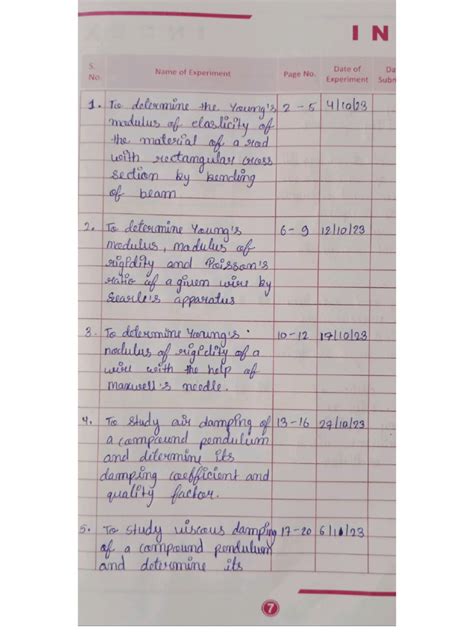 I N
S. No. Name of Experiment Page No. Date of Experiment Da Subm
1. To determine the Young's 2 - 5 4/10/23
modulus of elasticity of
the material of a rod
with rectangular cross
section by bending
of beam
2. To determine Young's 6 - 9 12/10/23
modulus, modulus of
rigidity and Poisson's
ratio of a given wire by
Searle's apparatus
3. To determine Young's 10 - 12 17/10/23
modulus of rigidity of a
wire with the help of
maxwell's needle.
4. To study air damping of 13 - 16 27/10/23
a compound pendulum
and determine its
damping coefficient and
quality factor.
5. To study viscous damping 17 - 20 6/11/23
of a compound pendulum
and determine its
7